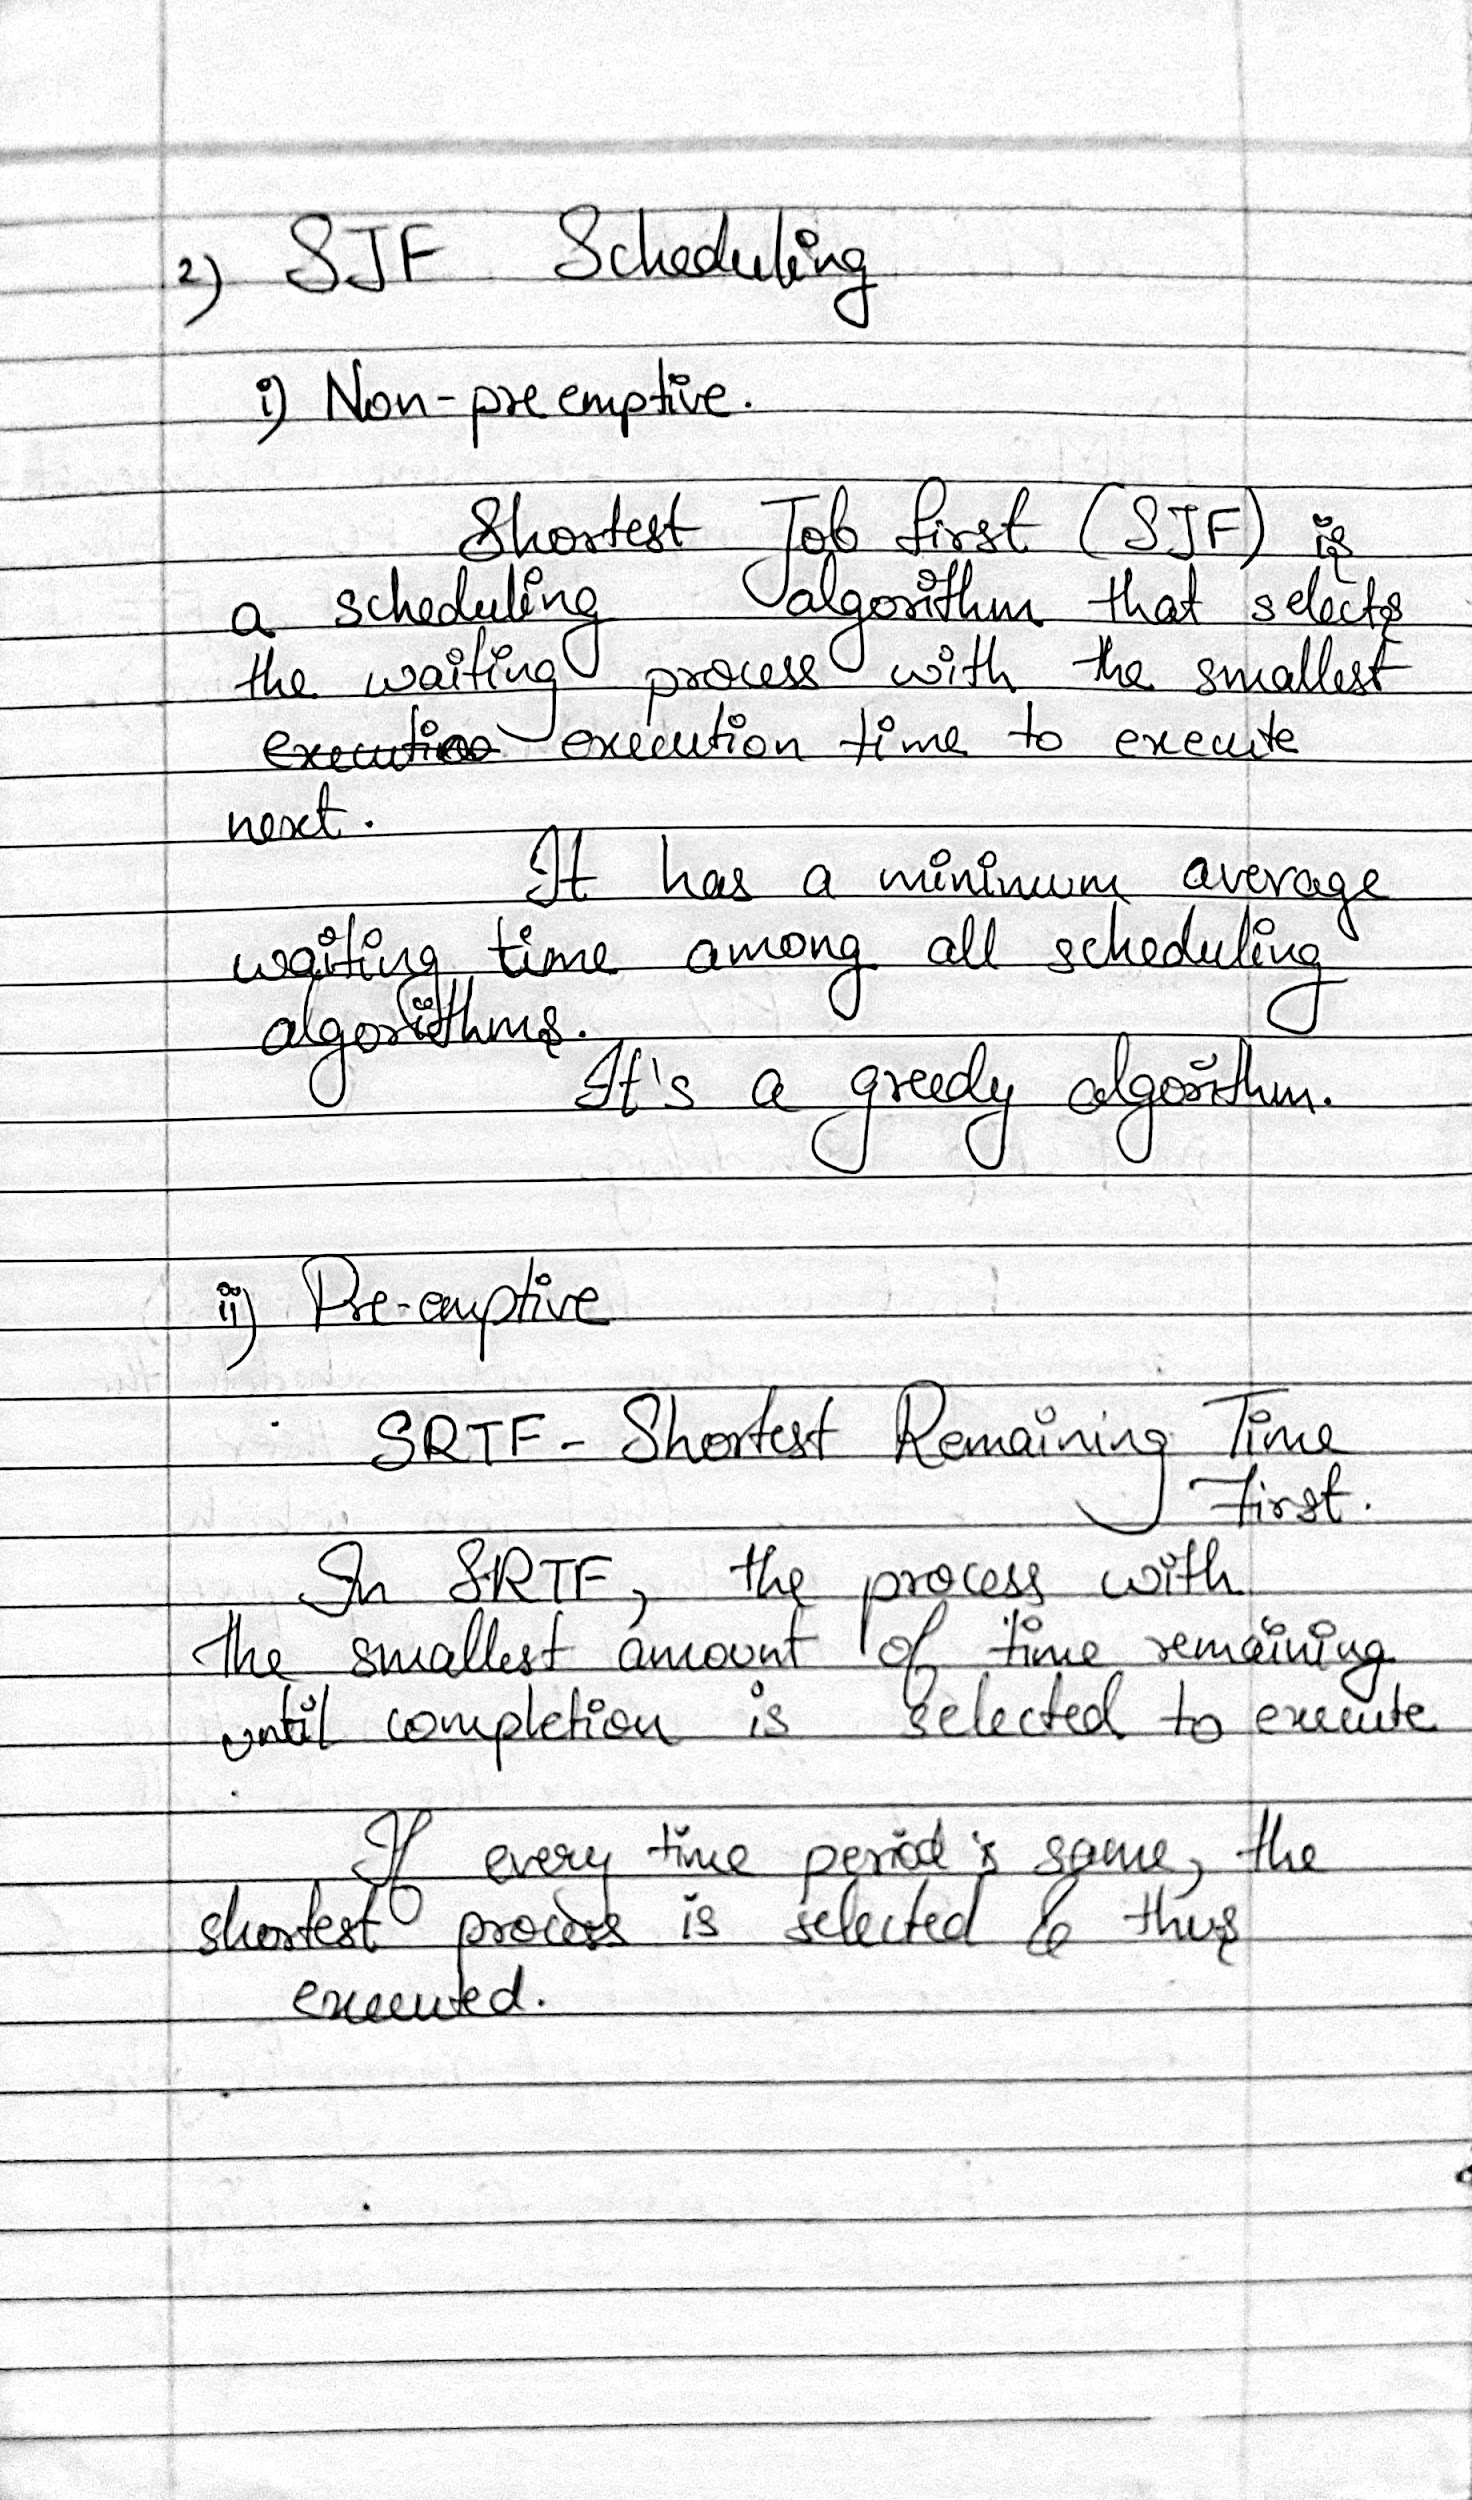 2) SJF Scheduling
i) Non-preemptive.
Shortest Job first (SJF) is
a scheduling algorithm that selects
the waiting process with the smallest
execution execution time to execute
next.
It has a minimum average
waiting time among all scheduling
algorithms.
It's a greedy algorithm.
ii) Pre-emptive
SRTF - Shortest Remaining Time
First.
In SRTF, the process with
the smallest amount of time remaining
until completion is selected to execute
If every time period is same, the
shortest process is selected & thus
executed.